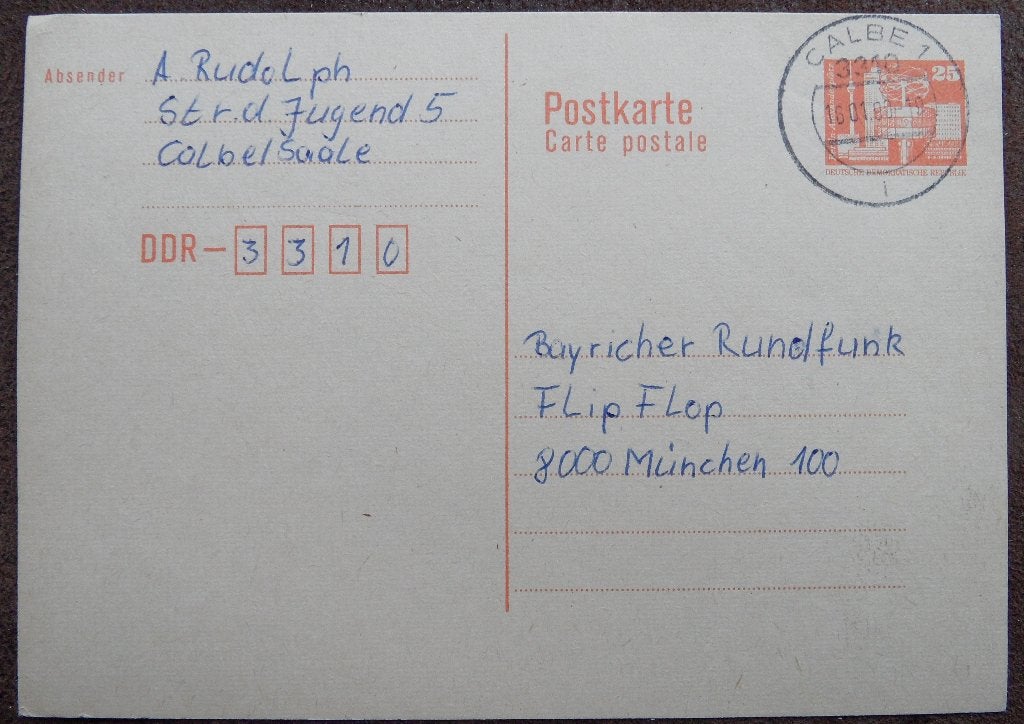 Absender A. Rudolph
Str. d. Jugend 5
Calbe/Saale
DDR – 3 3 1 0
Postkarte
Carte postale
CALBE 1
3310
25
DEUTSCHE DEMOKRATISCHE REPUBLIK
i
Bayricher Rundfunk
Flip Flop
8000 München 100